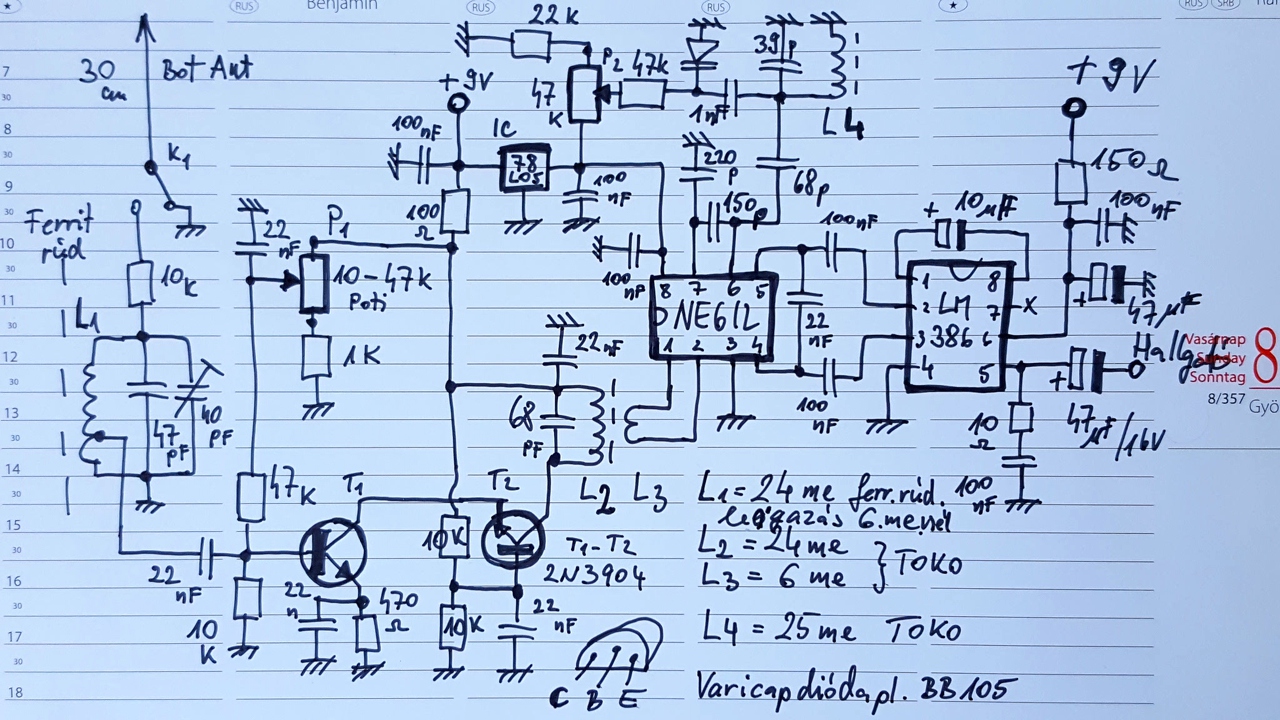 RUS
Benjamin
RUS
RUS
RUS SRB
22 K
30 cm
Bot Ant
P2
47k
39 p
+ 9V
47 K
1nF
L4
+ 9V
7
30
8
K1
100 nF
IC
78 L05
220 P
150 Ω
30
9
100 nF
68p
30
Ferrit rúd
22 nF
P1
100 Ω
150 p
100nF
+ 10 µF
100 nF
10
30
10K
10-47k Poti
100 nF
8 7 6 5
NE612
1 2 3 4
1 8
2 LM 7 X
3 386 6
4 5
+ 47 µF
11
30
L1
1K
22nF
22 nF
Hallgató
Vasárnap
Sunday
Sonntag
8
8/357
Györ
12
30
13
30
47 PF
40 PF
68 PF
100 nF
10 Ω
+ 47 µF/16V
14
30
47K
T1
T2
L2 L3
L1 = 24 me ferr. rúd.
100 nF
leágazás 6. menél
15
30
10K
T1-T2
2N3904
L2 = 24 me
L3 = 6 me
} TOKO
16
30
22 nF
10 K
22 n
470 Ω
10K
22 nF
17
30
L4 = 25 me TOKO
18
C B E
Varicap dióda pl. BB105